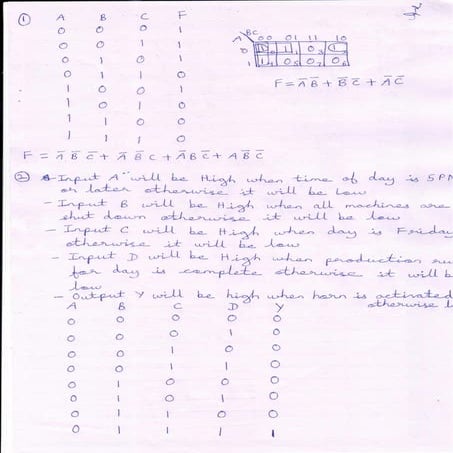 ① A B C F
0 0 0 1
0 0 1 1
0 1 0 1
0 1 1 0
1 0 0 1
1 0 1 0
1 1 0 0
1 1 1 0
BC
A 00 01 11 10
0 1 0 1 1 0 3 1 2
1 1 4 0 5 0 7 0 6
F = A̅ B̅ + B̅ C̅ + A̅ C̅
F = A̅ B̅ C̅ + A̅ B̅ C + A̅ B C̅ + A B̅ C̅
② - Input A will be High when time of day is 5PM
or later otherwise it will be low
- Input B will be High when all machines are
shut down otherwise it will be low
- Input C will be High when day is Friday
otherwise it will be low
- Input D will be High when production ru
for day is complete otherwise it will b
low
- Output Y will be high when horn is activated
otherwise l
A B C D Y
0 0 0 0 0
0 0 0 1 0
0 0 1 0 0
0 0 1 1 0
0 1 0 0 0
0 1 0 1 0
0 1 1 0 0
0 1 1 1 1